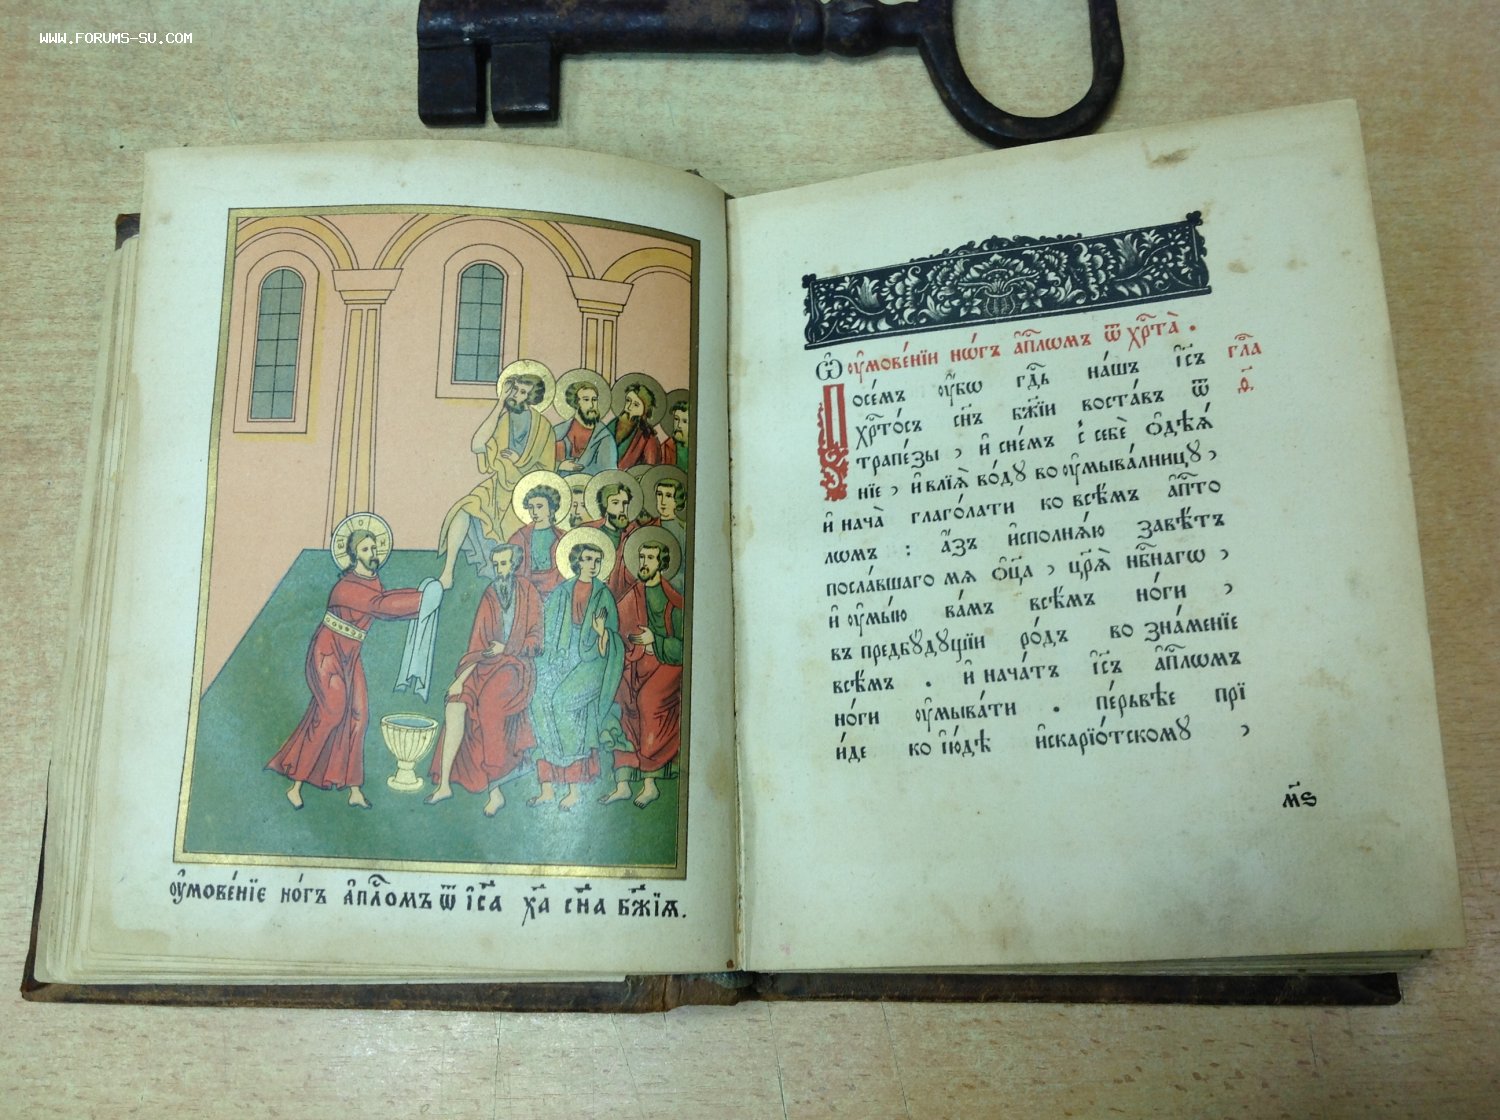 WWW.FORUMS-SU.COM
ᲂу҆мове́нїе но́гъ а҆пⷭ҇ломъ ѿ і҆и҃са хⷭ҇а сн҃а бж҃їѧ.
Ѡ ᲂу҆мове́нїи нѡ́гъ а҆пⷭ҇лѡмъ ѿ хрⷭ҇та̀ .
гла
Посе́мъ ᲂу҆́бѡ гдⷭ҇ь на́шъ і҆и҃съ
хрⷭ҇то́съ сн҃ъ бж҃їи воста́въ ѿ
трапе́зы , и҆ сне́мъ с себѐ ѻ҆дѣѧ́
нїе , и҆ влїѧ̀ во́дꙋ во ᲂу҆мыва́лницꙋ ,
и҆ нача̀ глаго́лати ко всѣ́мъ а҆пⷭ҇то
лѡмъ : а҆́зъ и҆сполнѧ́ю завѣ́тъ
посла́вшаго мѧ ѻ҆ц҃а , цр҃ѧ̀ нбⷭ҇нагѡ ,
и҆ ᲂу҆мы́ю ва́мъ всѣ́мъ но́ги ,
въ предбꙋдꙋщїи ро́дъ во зна́менїе
всѣ́мъ . и҆ нача́тъ і҆и҃съ а҆пⷭ҇лѡмъ
но́ги ᲂу҆мыва́ти . пе́рьвѣе прї
и́де ко і҆ю́дѣ и҆скарїо́тскомꙋ ,
м҃ѕ